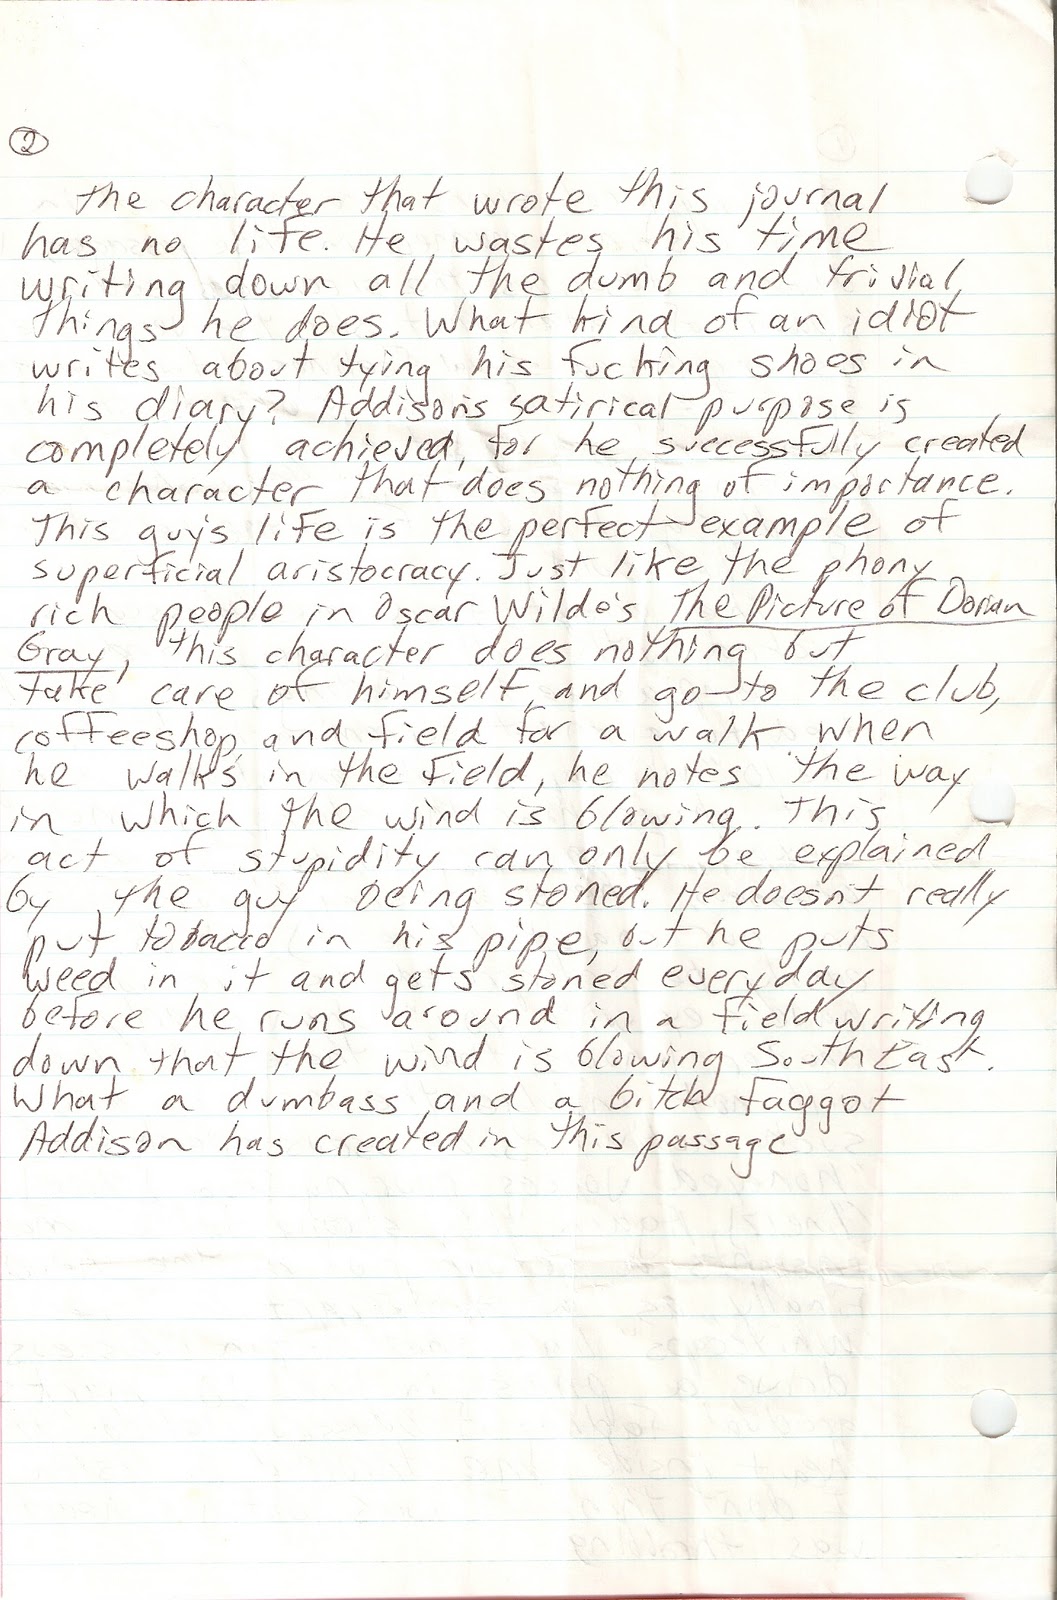 2
the character that wrote this journal
has no life. He wastes his time
writing down all the dumb and trivial
things he does. What kind of an idiot
writes about tying his fucking shoes in
his diary? Addison's satirical purpose is
completely achieved, for he successfully created
a character that does nothing of importance.
This guy's life is the perfect example of
superficial aristocracy. Just like the phony
rich people in Oscar Wilde's The Picture of Dorian
Gray, this character does nothing but
take care of himself, and go to the club,
coffeeshop, and field for a walk. when
he walks in the field, he notes the way
in which the wind is blowing. This
act of stupidity can only be explained
by the guy being stoned. He doesn't really
put tobacco in his pipe, but he puts
weed in it and gets stoned everyday
before he runs around in a field writing
down that the wind is blowing SouthEast.
What a dumbass and a bitch faggot
Addison has created in this passage